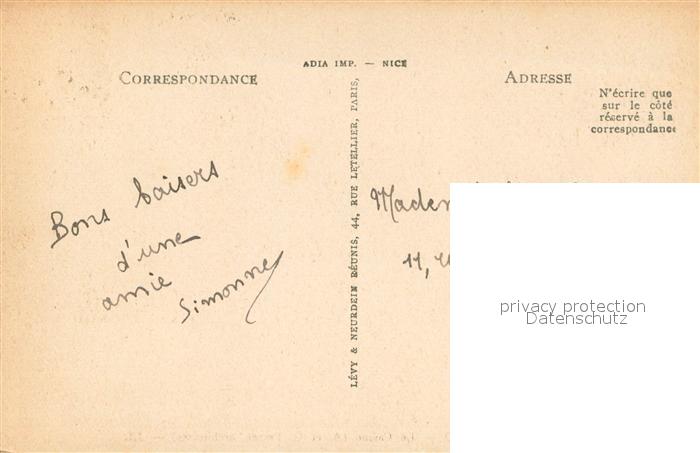 ADIA IMP. — NICE
CORRESPONDANCE
ADRESSE
N'écrire que
sur le côté
réservé à la
correspondance
LÉVY & NEURDEIN RÉUNIS, 44, RUE LETELLIER, PARIS,
Bons baisers
d'une
amie
Simonne
11,
privacy protection
Datenschutz